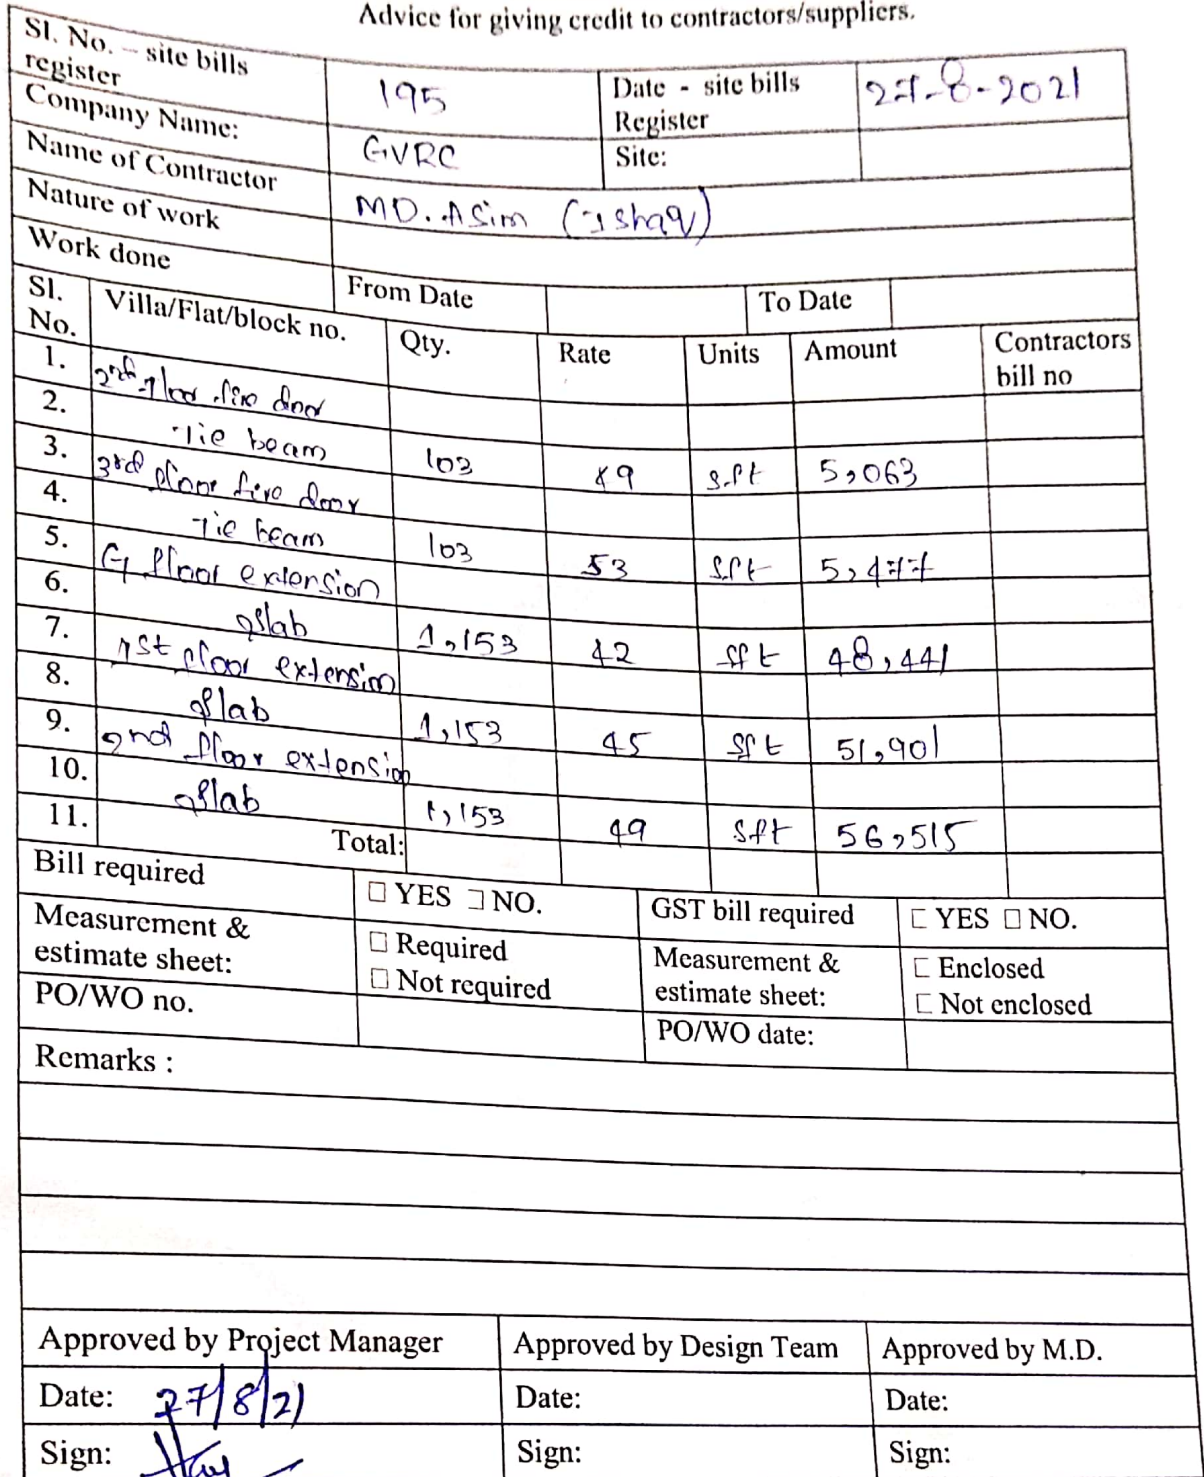 Advice for giving credit to contractors/suppliers.
Sl. No. – site bills register 195 Date - site bills Register 27-8-2021
Company Name: GVRC Site:
Name of Contractor MD. Asim (Ishaq)
Nature of work
Work done From Date To Date
Sl. No. Villa/Flat/block no. Qty. Rate Units Amount Contractors bill no
1. 2nd floor fire door
2. Tie beam 103 49 sft 5,063
3. 3rd floor fire door
4. Tie beam 103 53 sft 5,477
5. G floor extension
6. slab 1,153 42 sft 48,441
7. 1st floor extension
8. slab 1,153 45 sft 51,901
9. 2nd floor extension
10. slab 1,153 49 sft 56,515
11. Total:
Bill required □ YES □ NO. GST bill required □ YES □ NO.
Measurement & estimate sheet: □ Required □ Not required Measurement & estimate sheet: □ Enclosed □ Not enclosed
PO/WO no. PO/WO date:
Remarks :
Approved by Project Manager Approved by Design Team Approved by M.D.
Date: 27/8/21 Date: Date:
Sign: Sign: Sign: